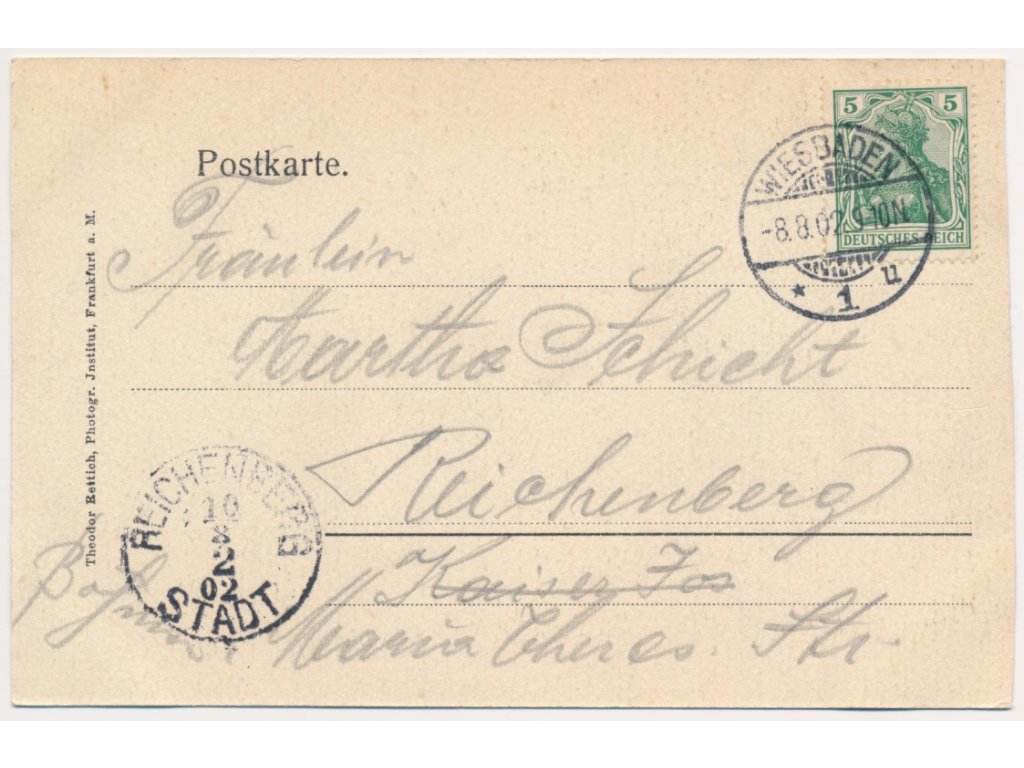 Postkarte.
5 5
DEUTSCHES REICH
WIESBADEN
-8.8.02 9-10N
* 1 u
Fräulein
Martha Schicht
Reichenberg
Kaiser Jos
Maria Theres. Str.
REICHENBERG
10
8
2
02
STADT
Theodor Rettich, Photogr. Jnstitut, Frankfurt a. M.